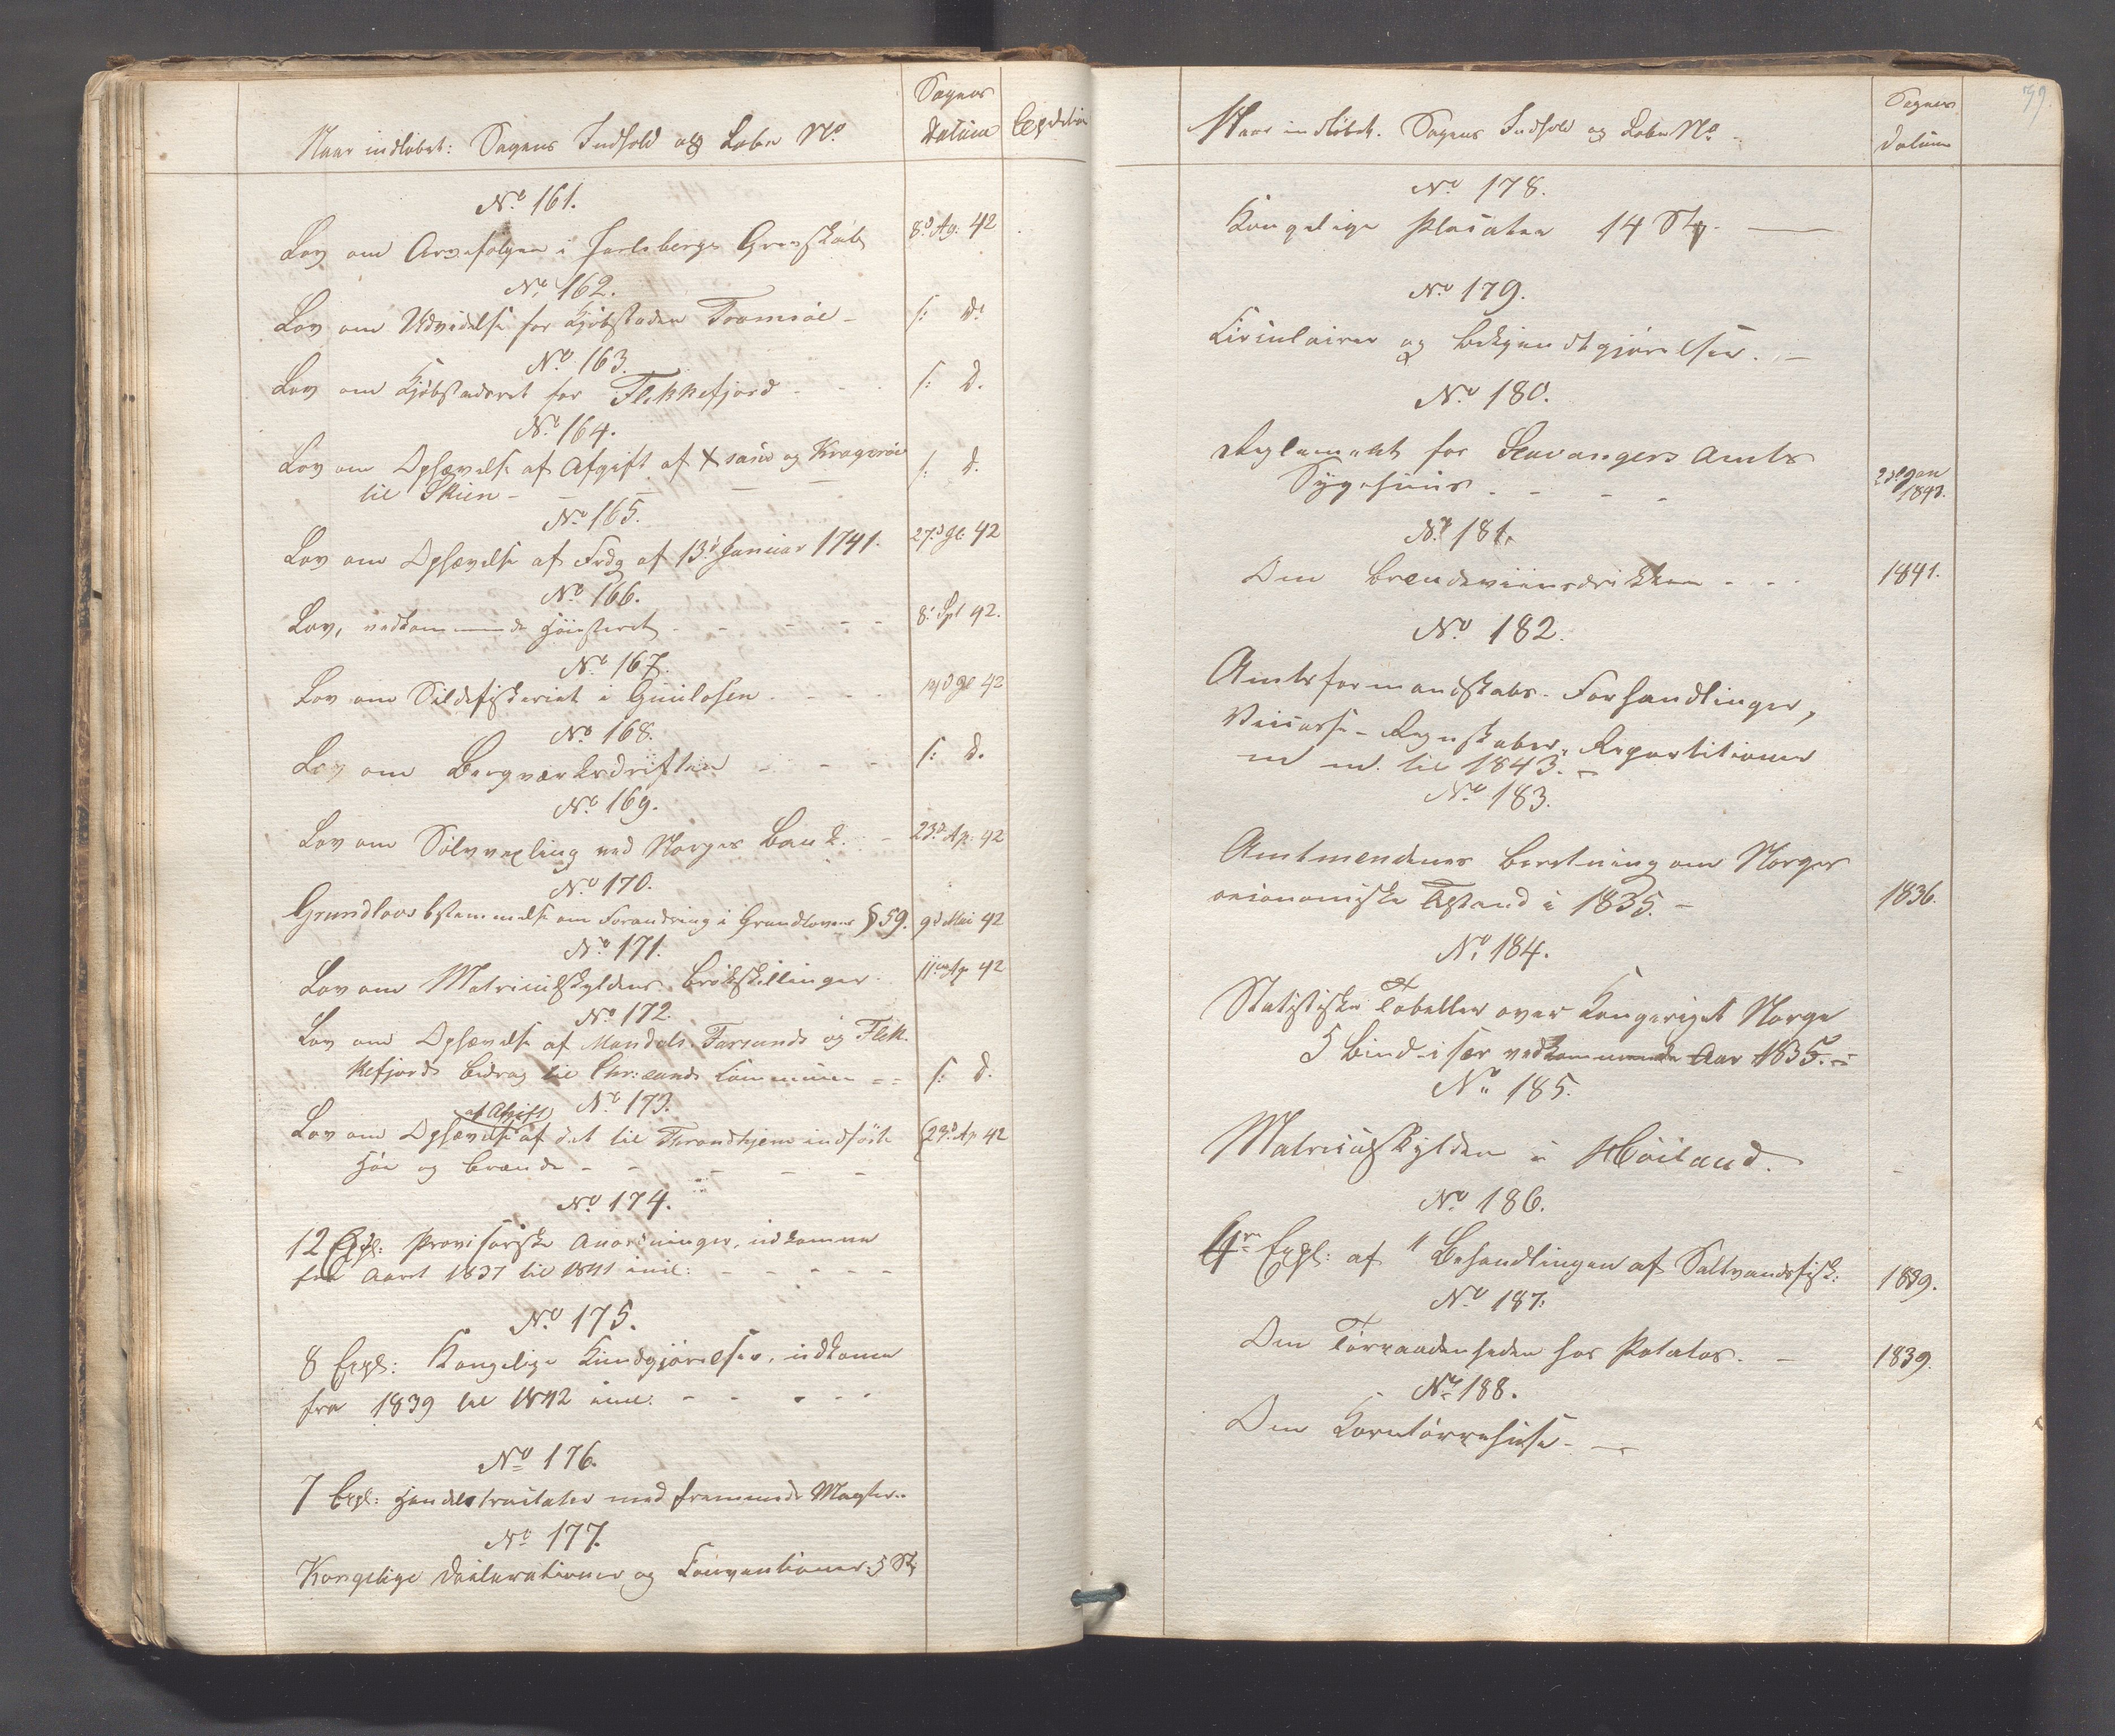 Naar indløbet: Sagens Indhold og Løbe No
Sagens
Datum
Expedition
No 161.
Lov om Arvefølgen i Jarlsbergs Grevskab
8d Ap. 42
No 162.
Lov om Udvidelse for Kjøbstaden Tromsøe -
s: D.
No 163.
Lov om Kjøbstadret for Flekkefjord - -
s: D.
No 164.
Lov om Ophævelse af Afgift af og Kragerøe
til Skien - - - - -
s: D.
No 165.
Lov om Ophævelse af Frdg af 13d Januar 1741.
27d 42
No 166.
Lov, vedkommende Høiesteret - - - - -
8 Spt 42.
No 167.
Lov om Sildefiskeriet i - - -
42
No 168.
Lov om Bergværksdriften - - -
s: D.
No 169.
Lov om Sølvvexling ved Norges Bank. -
23d Ap. 42
No 170.
Grundlovsbstemmelse om Forandring i Grundlovens § 59.
9d Mai 42
No 171.
Lov om Matriculskyldens Brøkskillinger
11 Ap 42
No 172.
Lov om Ophævelse af Mandals, Farsunds og Flek-
kefjords Bidrag til Chr:sands Commune - -
s: D.
No 173.
af Afgift
Lov om Ophævelse af det til Throndhjem indførte
Høe og Brænde - - - - -
23d Ap 42
No 174.
12 Expl: Provisoriske Anordninger, udkomne
fra Aaret 1837 til 1841 incl: - - - - -
No 175.
8 Expl: Kongelige Kundgjørelser, udkomne
fra 1839 til 1842 incl. - - - -
No 176.
7 Expl: Handelstractater med fremmede Magter.
No 177.
Kongelige Declarationer og Conventioner 5 St.
39.
Naar indløbet. Sagens Indhold og Løbe No -
Sagens
Datum
No 178.
Kongelige Placater 14 St. -
No 179.
Circulairer og Bekjendtgjørelser. -
No 180.
Reglement for Stavangers Amts
Sygehuus - - - -
Jan
1843.
No 181.
Om Brændeviinsdrikken - - -
1841.
No 182.
Amtsformandskabs-Forhandlinger,
Regnskaber, Repartitioner
m m. til 1843. -
No 183.
Amtmændenes Beretning om Norges
oeconomiske Tilstand i 1835. -
1836.
No 184.
Statistiske Tabeller over Kongeriget Norge
5 Bind især vedkommende Aar 1835. -
No 185.
Matriculskylden i Høiland.
-
No 186.
4re Expl: af "Behandlingen af Saltvandsfisk:
1839.
No 187.
Om Tørraadenheden hos Potatos. -
1839.
No 188.
Om Korntørrehuse - -